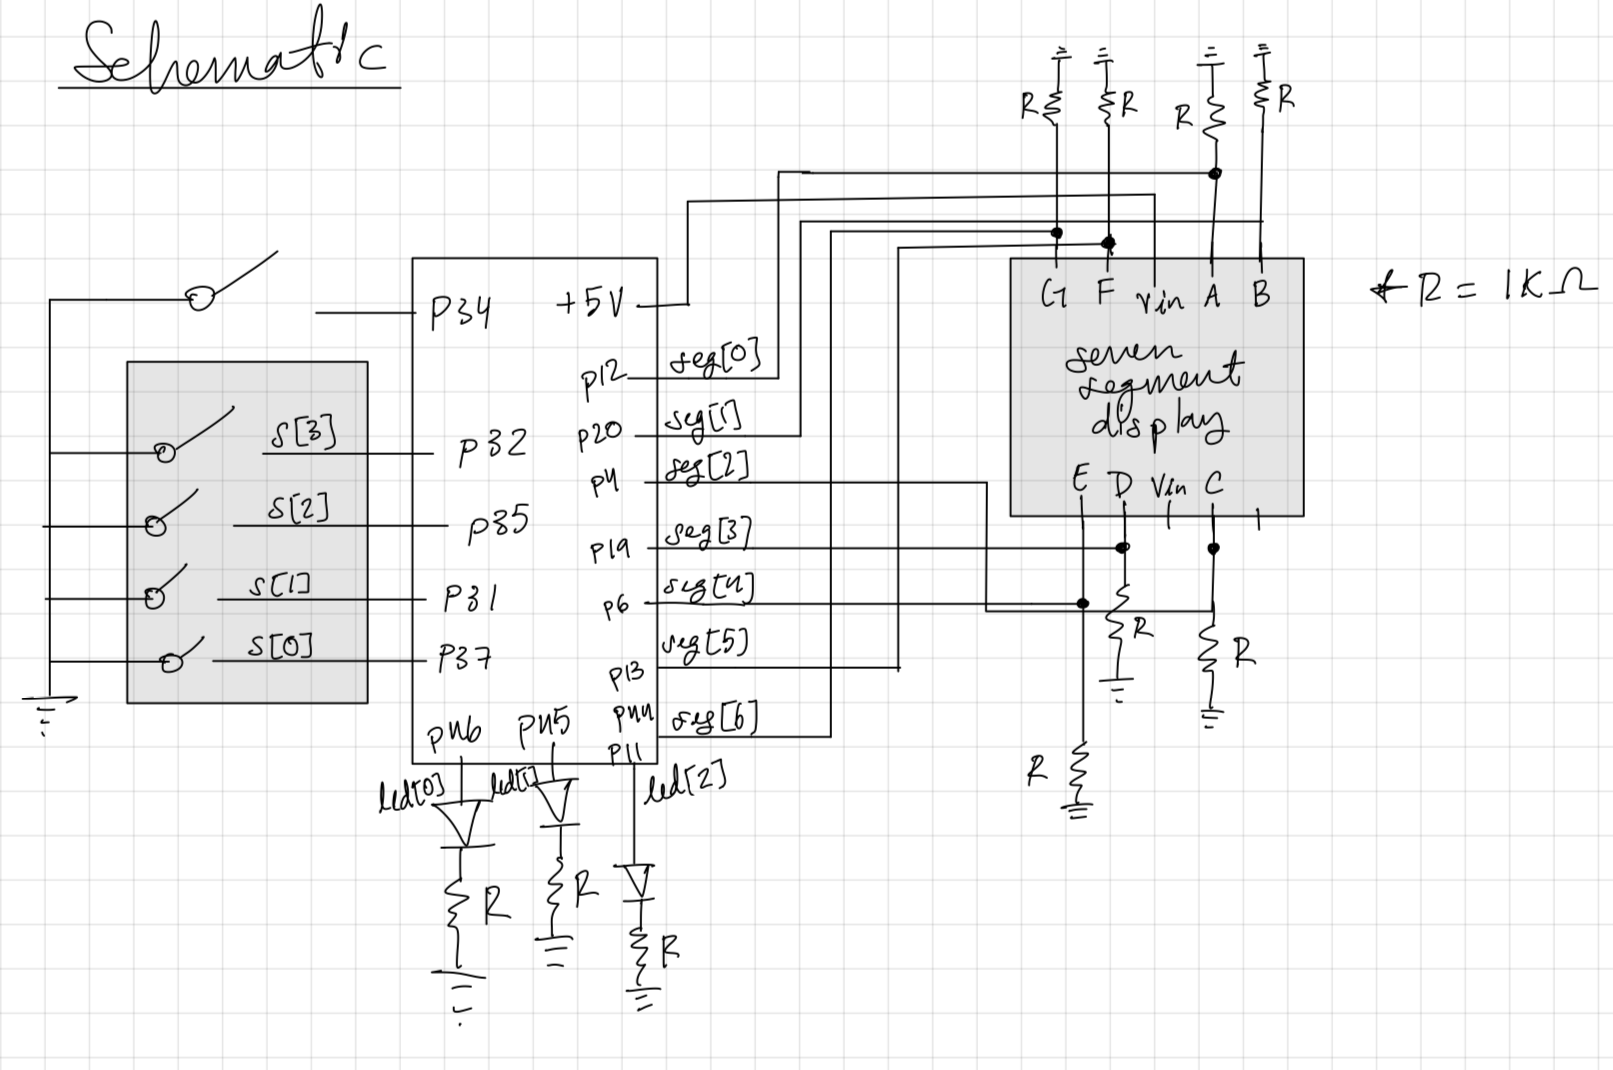 Schematic
R
R
R
R
P34
+5V
G
F
Vin
A
B
* R = 1KΩ
P12
seg[0]
seven
segment
display
S[3]
P32
P20
seg[1]
P4
seg[2]
E
D
Vin
C
S[2]
P35
P19
seg[3]
S[1]
P31
P6
seg[4]
S[0]
P37
P13
seg[5]
R
R
P46
P45
P44
seg[6]
P11
led[0]
led[1]
led[2]
R
R
R
R